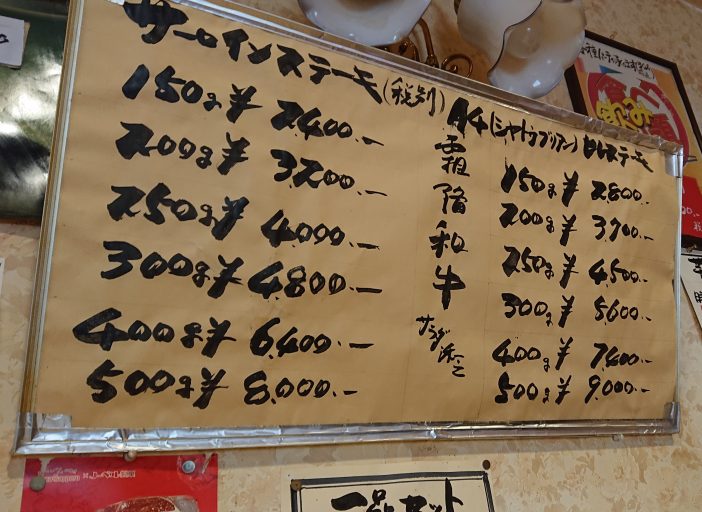 サーロインステーキ(税別)
150g¥ 2,400.-
200g¥ 3,200.-
250g¥ 4,000.-
300g¥ 4,800.-
400g¥ 6,400.-
500g¥ 8,000.-
霜降和牛
サラダ添え
A4(シャトーブリアン)ヒレステーキ
150g¥ 2,800.-
200g¥ 3,700.-
250g¥ 4,500.-
300g¥ 5,600.-
400g¥ 7,400.-
500g¥ 9,000.-
一品セット